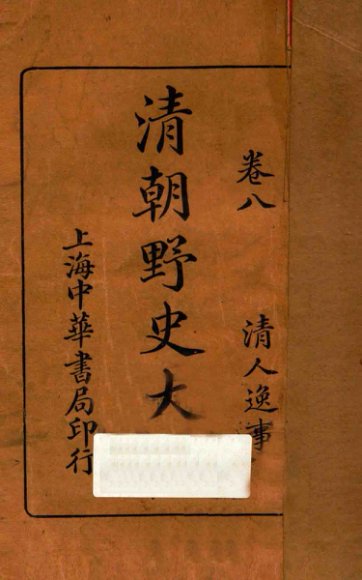 卷八
清人逸事
清朝野史大
上海中華書局印行